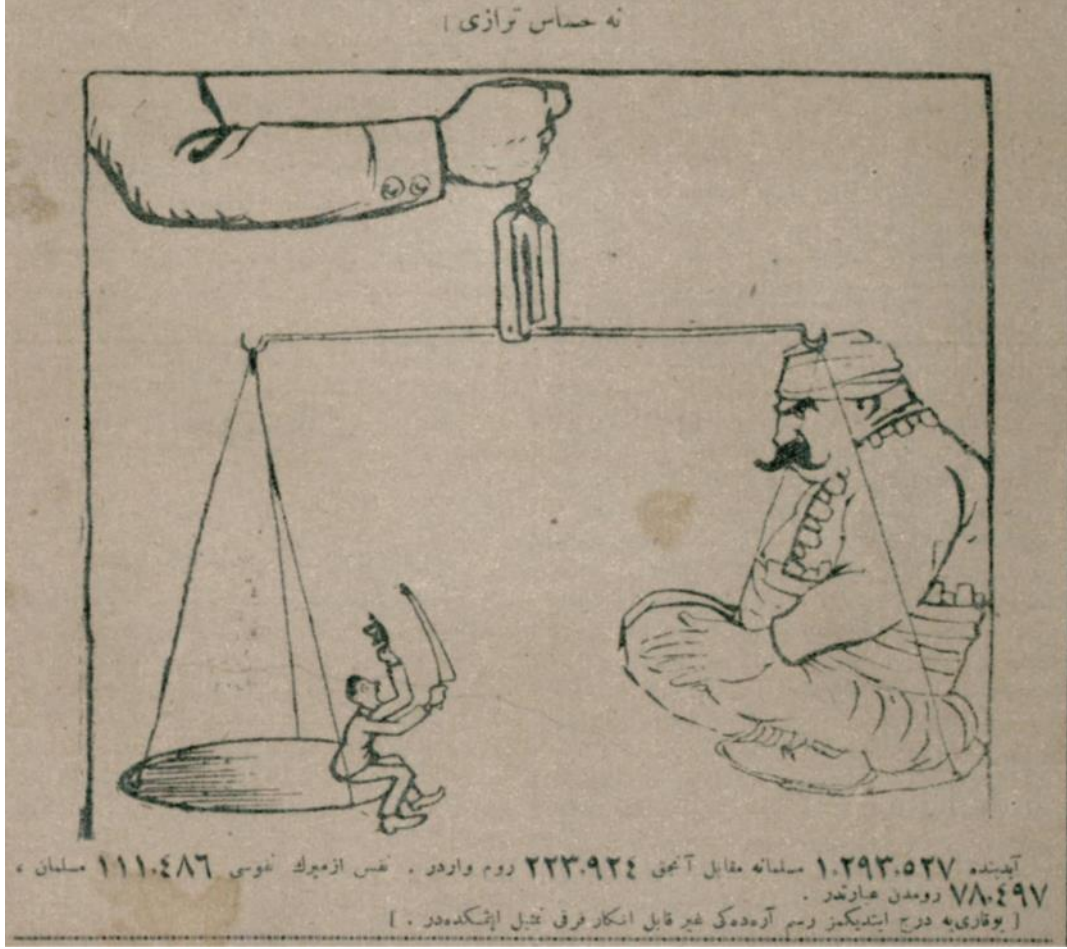 نه حساس ترازی !
آیدینده ١.٢٩٣.٥٢٧ مسلمانه مقابل آنجق ٢٢٣.٩٢٤ روم واردر . نفس ازمیرك نفوسی ١١١.٤٨٦ مسلمان ،
٧٨.٤٩٧ رومدن عبارتدر .
[ یوقاری‌یه درج ایتدیکمز رسم آره‌ده‌کی غیر قابل انکار فرقی تمثیل ایتمکده‌در . ]